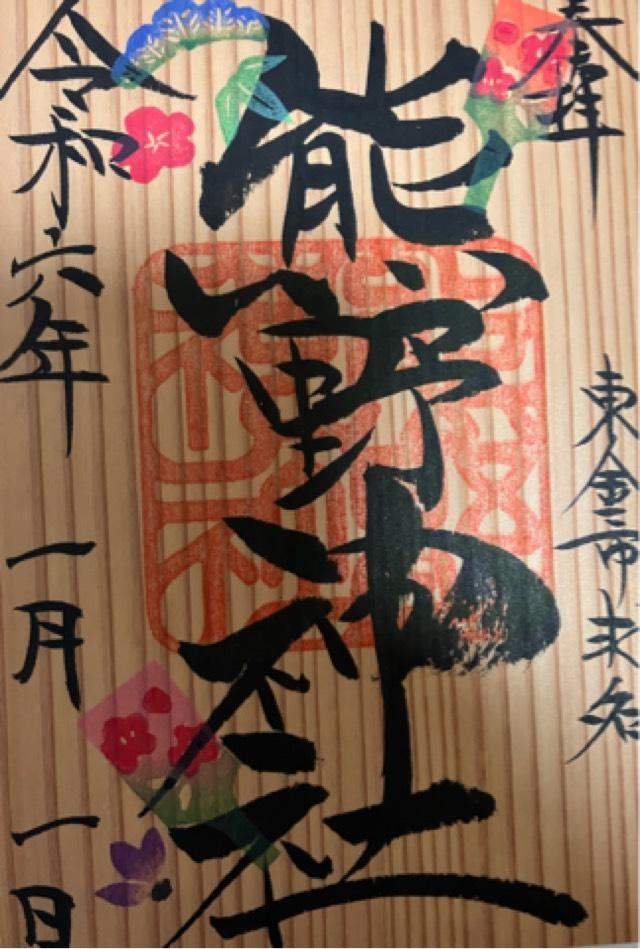 奉拝
東金市求名
熊野神社
令和六年一月一日